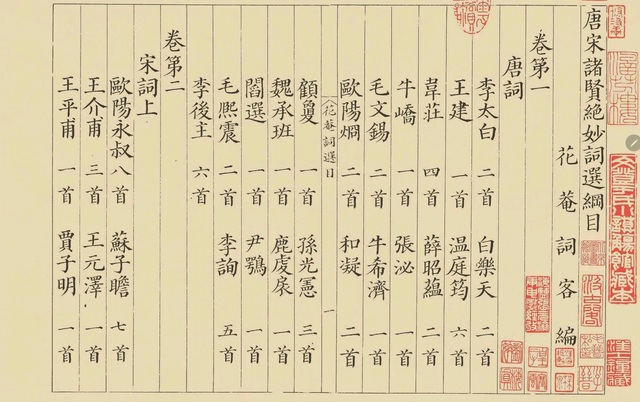 唐宋諸賢絕妙詞選綱目
花菴詞客編
卷第一
唐詞
李太白 二首 白樂天 二首
王建 一首 温庭筠 六首
韋莊 四首 薛昭蘊 二首
牛嶠 一首 張泌 一首
毛文錫 二首 牛希濟 一首
歐陽炯 二首 和凝 二首
花菴詞選目 一
顧敻 一首 孫光憲 三首
魏承班 一首 鹿虔扆 一首
閻選 一首 尹鶚 一首
毛熙震 二首 李詢 五首
李後主 六首
卷第二
宋詞上
歐陽永叔 八首 蘇子瞻 七首
王介甫 三首 王元澤 一首
王平甫 一首 賈子明 一首